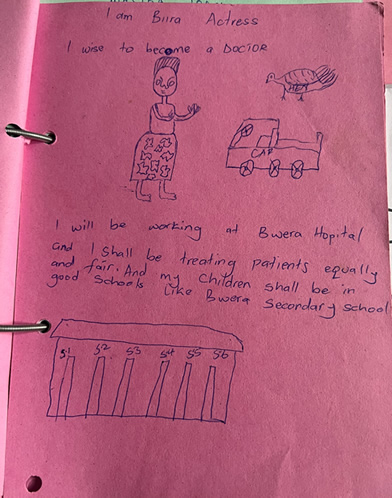 I am Biira Actress
I wise to become a DOCTOR
HEN
CAR
I will be working at Bwera Hopital
and I shall be treating patients equally
and fair. And my children shall be in
good Schools like Bwera Secondary school
S1 S2 S3 S4 S5 S6